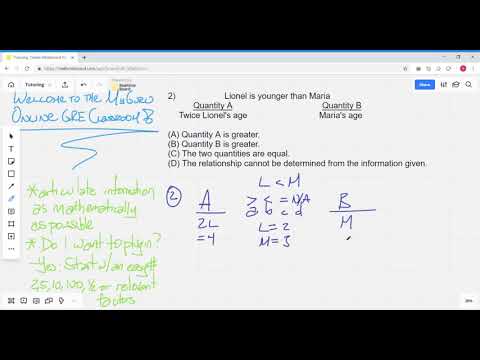 2) Lionel is younger than Maria
Quantity A Quantity B
Twice Lionel's age Maria's age
(A) Quantity A is greater.
(B) Quantity B is greater.
(C) The two quantities are equal.
(D) The relationship cannot be determined from the information given.
WELCOME TO THE
ONLINE GRE CLASSROOM
* articulate information
as mathematically
as possible
* Do I want to plugin?
-Yes: Start w/an easy #
2, 5, 10, 100, ½ or relevant
factors
L < M
2 A > < = N/A B
a b c d
2L L = 2 M
= 4 M = 3